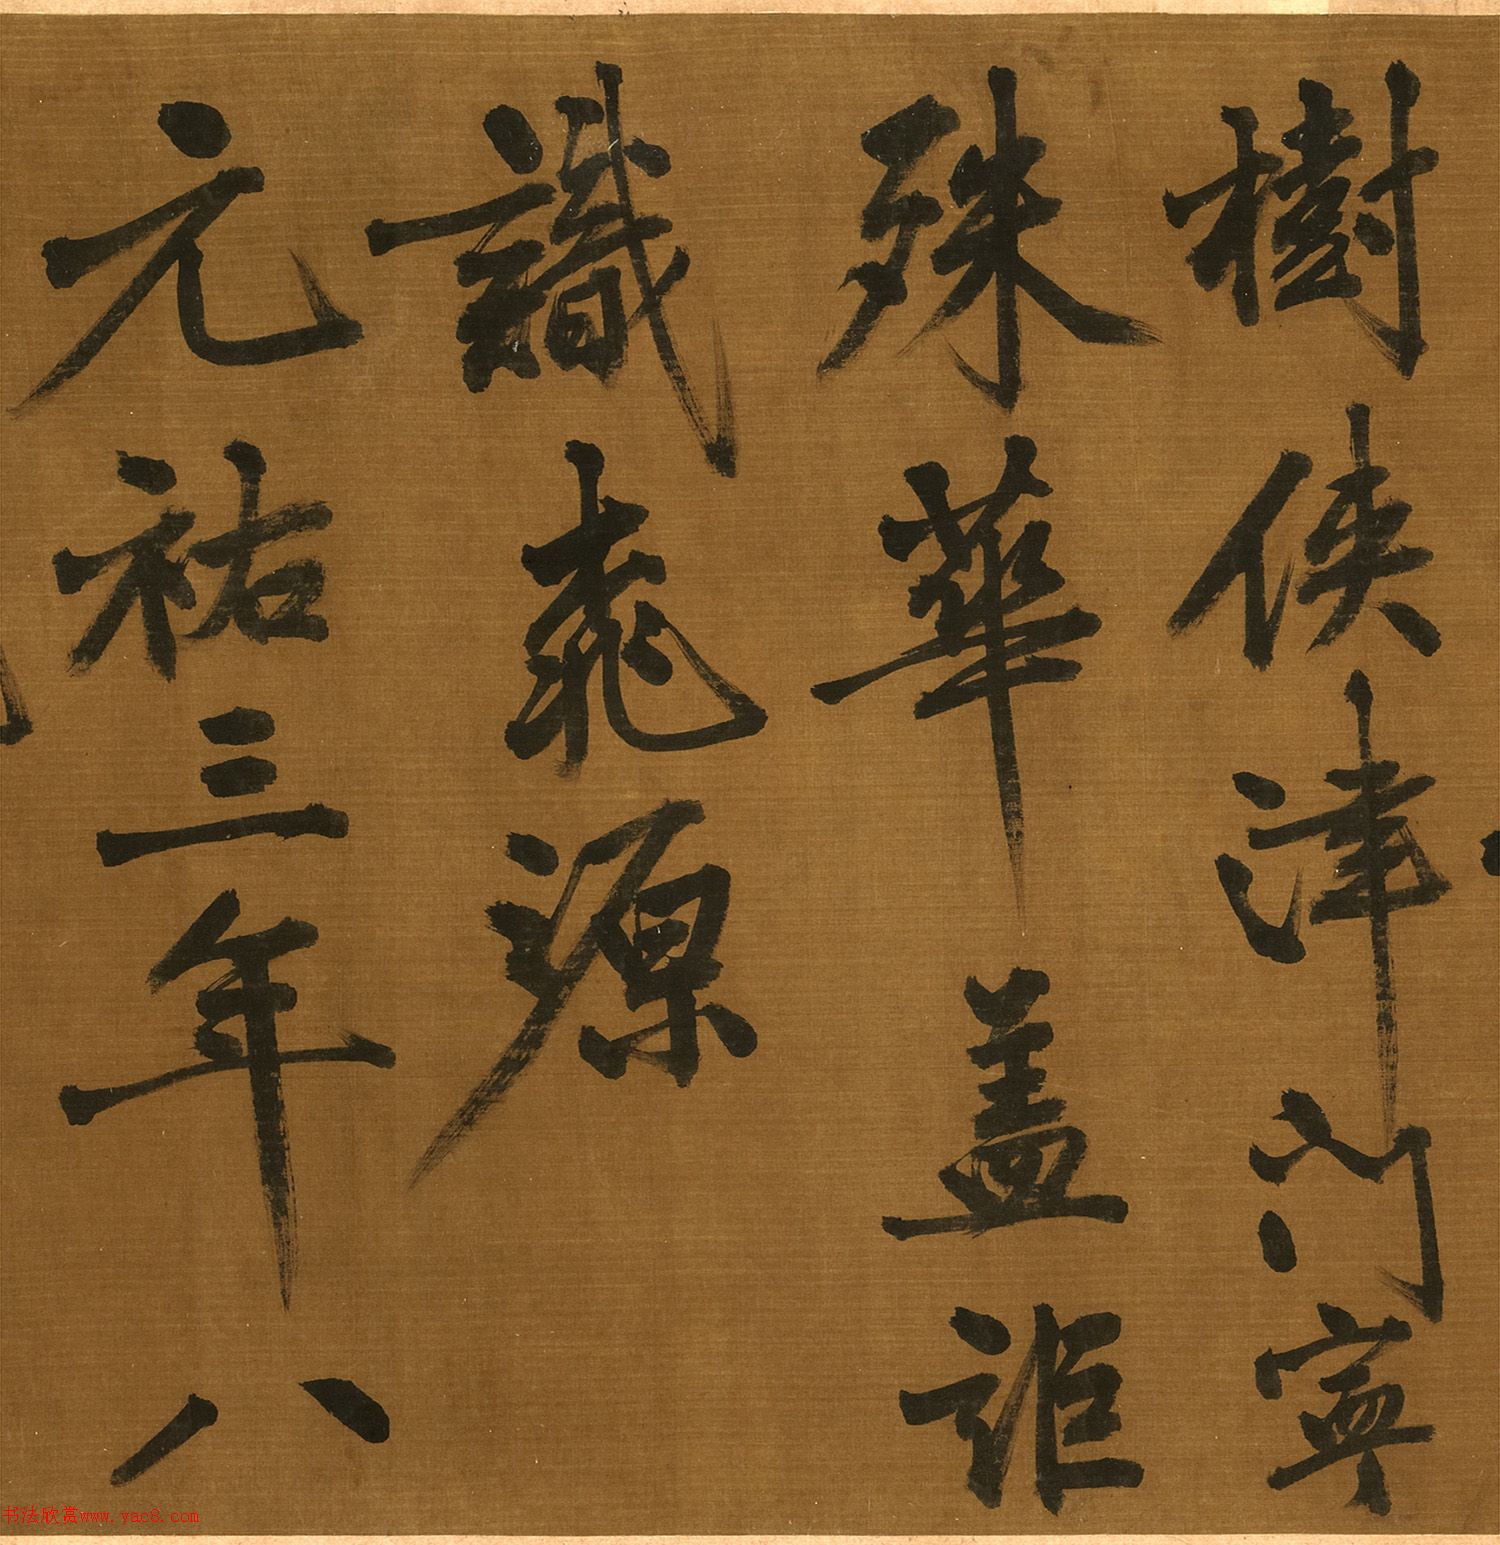 樹俠津門寧
殊華盖詎
識桃源
元祐三年八
书法欣赏www.yac8.com